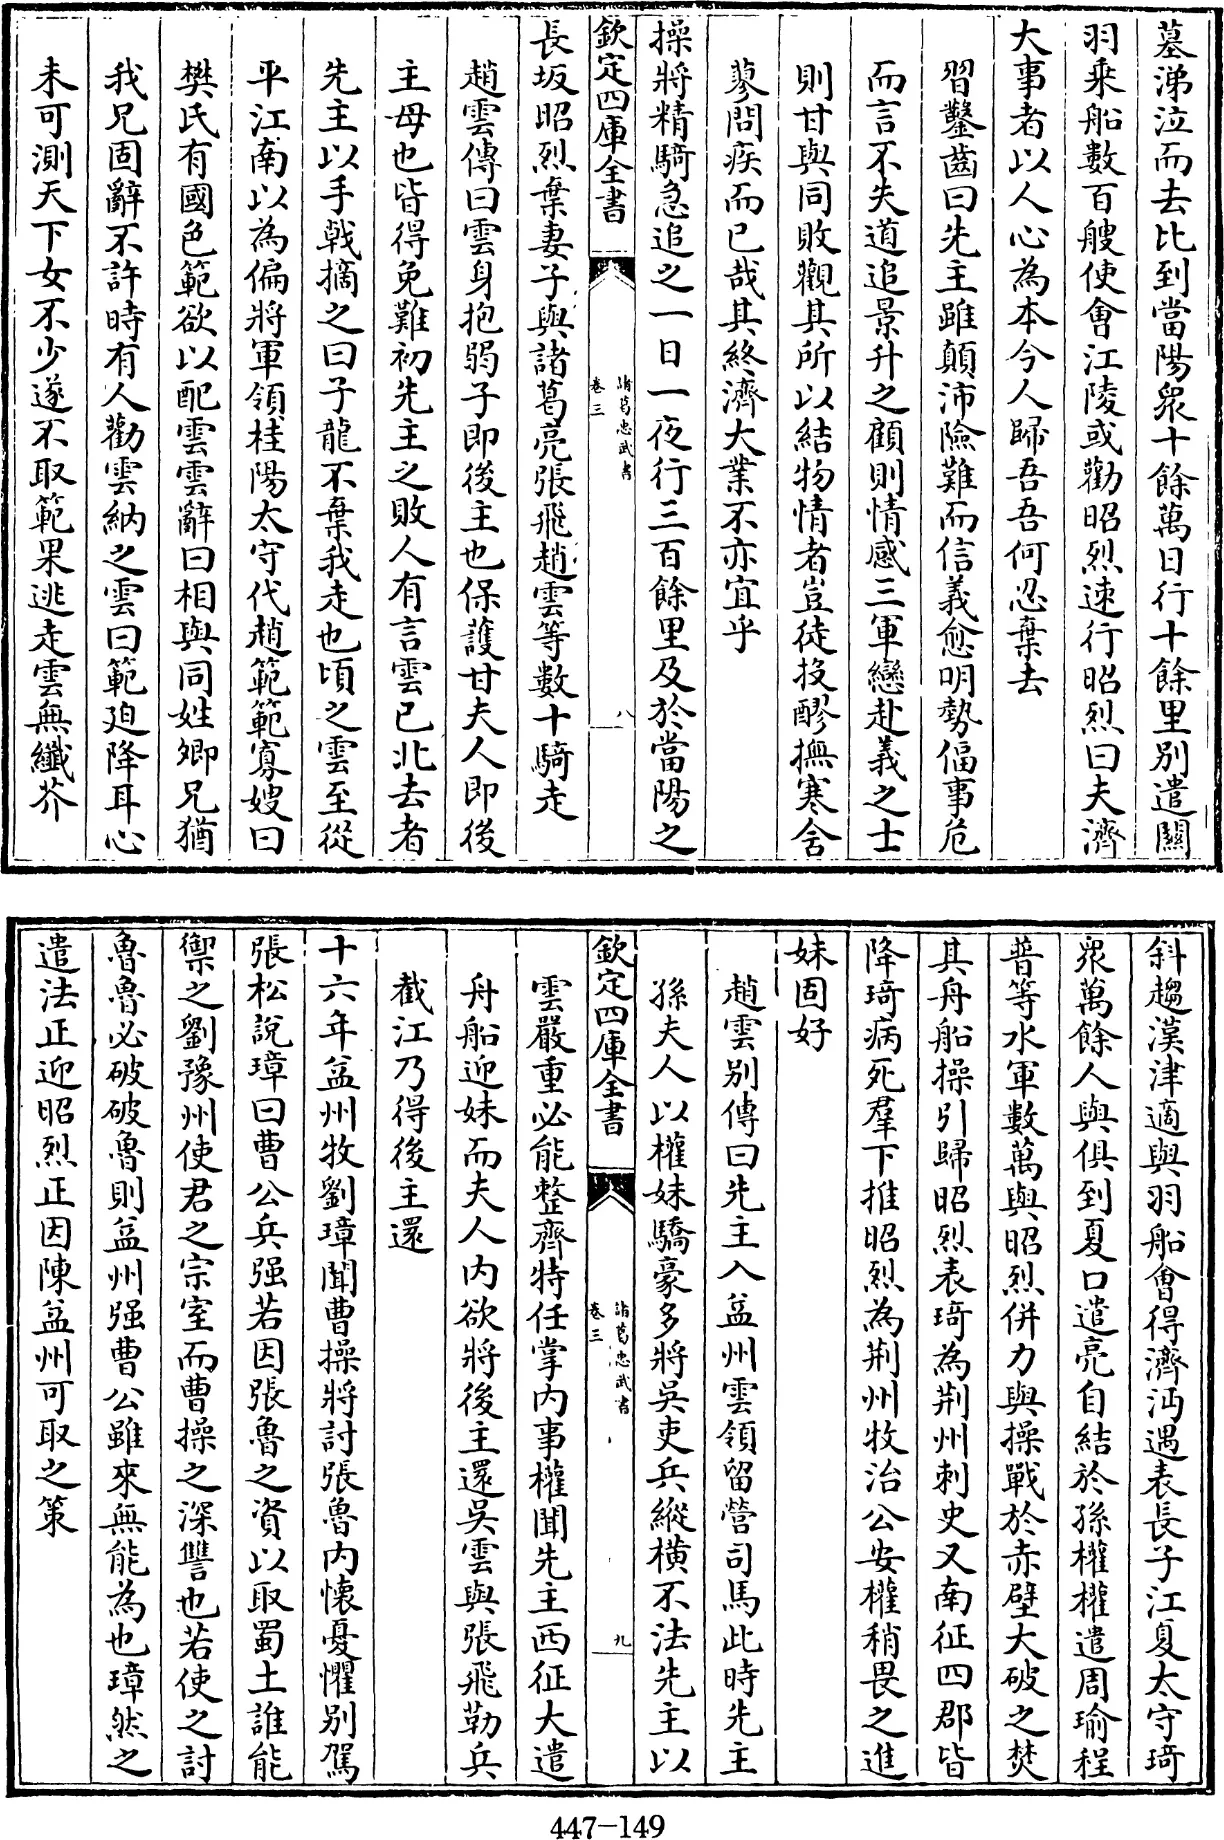 墓涕泣而去比到當陽衆十餘萬日行十餘里别遣關
羽乗船數百艘使會江陵或勸昭烈速行昭烈曰夫濟
大事者以人心為本今人歸吾吾何忍棄去
習鑿齒曰先主雖顛沛險難而信義愈明勢偪事危
而言不失道追景升之顧則情感三軍戀赴義之士
則甘與同敗觀其所以結物情者豈徒投醪撫寒含
蓼問疾而已哉其終濟大業不亦宜乎
操將精騎急追之一日一夜行三百餘里及於當陽之
欽定四庫全書
諸葛忠武書
卷三
八
長坂昭烈棄妻子與諸葛亮張飛趙雲等數十騎走
趙雲傳曰雲身抱弱子即後主也保護甘夫人即後
主母也皆得免難初先主之敗人有言雲已北去者
先主以手戟擿之曰子龍不棄我走也頃之雲至從
平江南以為偏將軍領桂陽太守代趙範範寡嫂曰
樊氏有國色範欲以配雲雲辭曰相與同姓卿兄猶
我兄固辭不許時有人勸雲納之雲曰範廹降耳心
未可測天下女不少遂不取範果逃走雲無纖芥
斜趨漢津適與羽船會得濟沔遇表長子江夏太守琦
衆萬餘人與俱到夏口遣亮自結於孫權權遣周瑜程
普等水軍數萬與昭烈併力與操戰於赤壁大破之焚
其舟船操引歸昭烈表琦為荆州刺史又南征四郡皆
降琦病死羣下推昭烈為荆州牧治公安權稍畏之進
妹固好
趙雲别傳曰先主入益州雲領留營司馬此時先主
孫夫人以權妹驕豪多將吳吏兵縱横不法先主以
欽定四庫全書
諸葛忠武書
卷三
九
雲嚴重必能整齊特任掌内事權聞先主西征大遣
舟船迎妹而夫人内欲將後主還吳雲與張飛勒兵
截江乃得後主還
十六年益州牧劉璋聞曹操將討張魯内懷憂懼别駕
張松說璋曰曹公兵强若因張魯之資以取蜀土誰能
禦之劉豫州使君之宗室而曹操之深讐也若使之討
魯魯必破破魯則益州强曹公雖來無能為也璋然之
遣法正迎昭烈正因陳益州可取之策
447-149